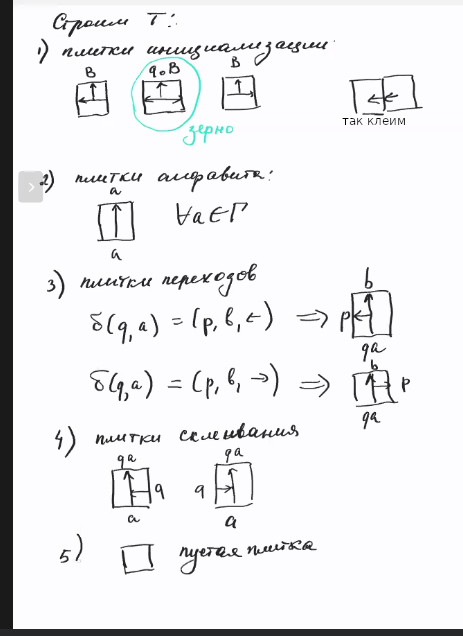 Строим T:
1) плитки инициализации
B q₀B B
зерно
так клеим
2) плитки алфавита:
a
∀a∈Γ
a
3) плитки переходов
b
δ(q,a) = (p, b, ←) ⇒ p
qa
b
δ(q,a) = (p, b, →) ⇒ p
qa
4) плитки склеивания
qa qa
q q
a a
5) пустая плитка